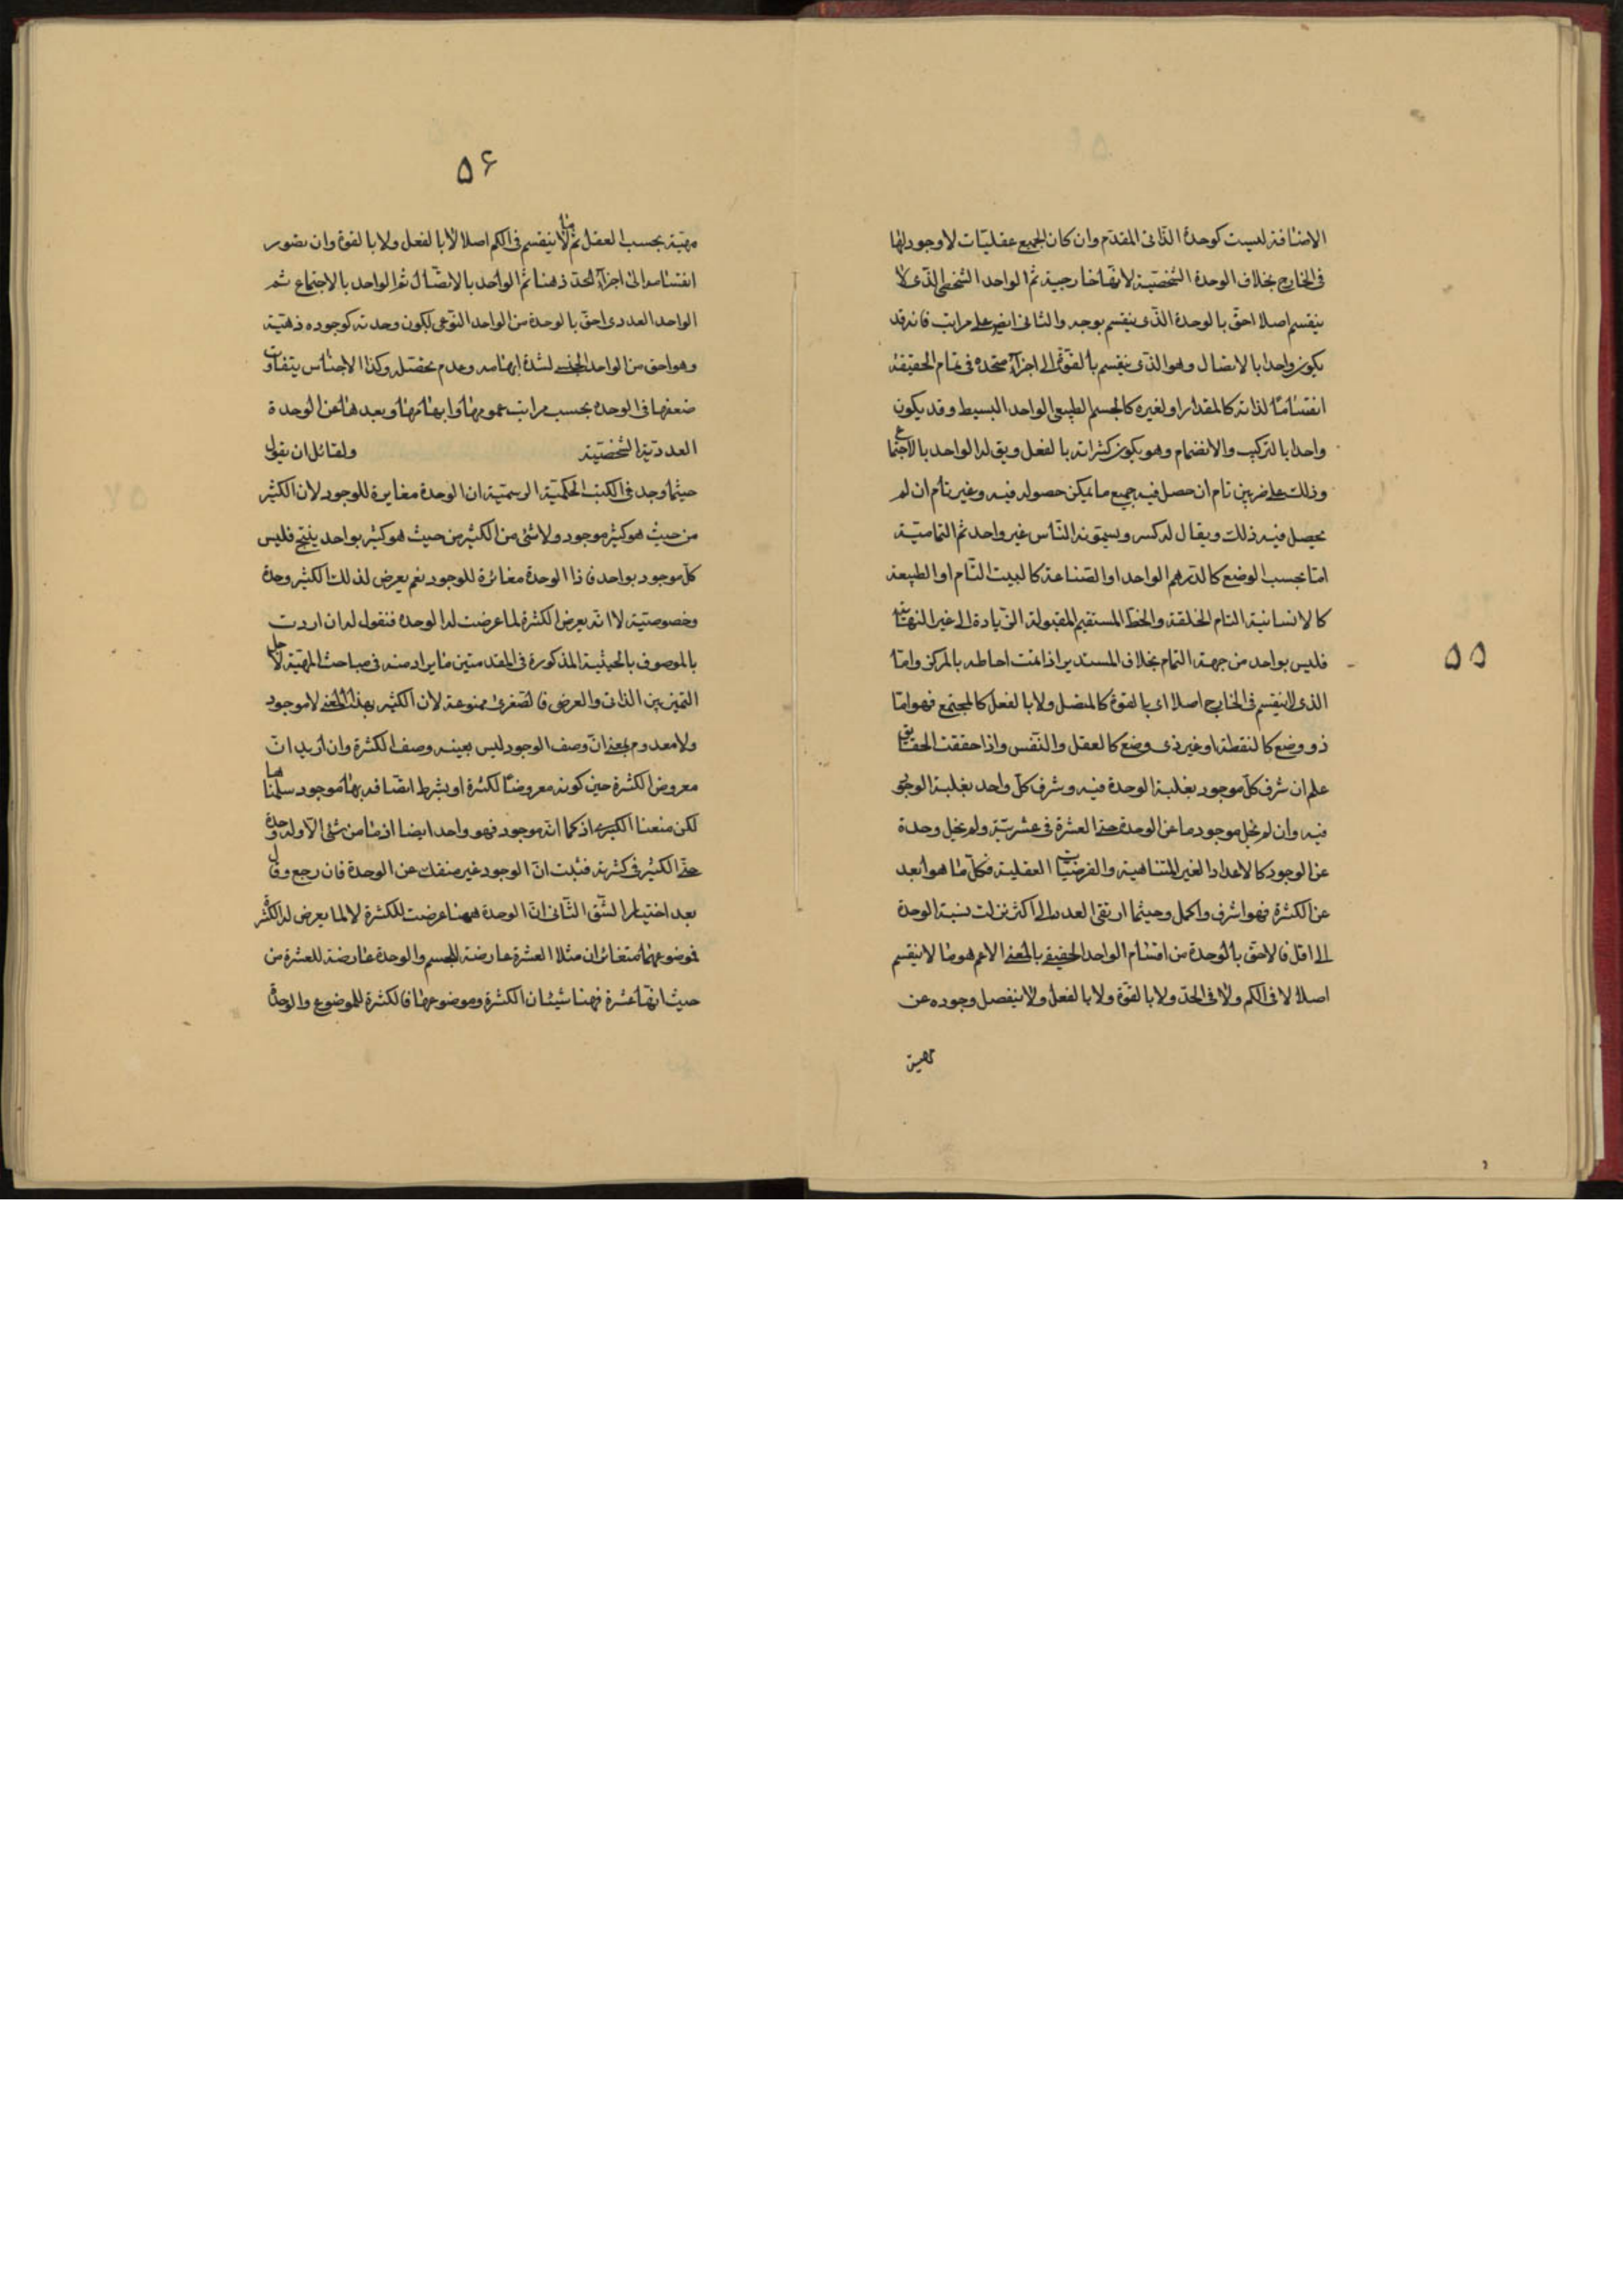 ۵۵
الاضافة ليست كوحدة الذاتى المقدّم وان كان الجميع عقليّات لا وجود لها
فى الخارج بخلاف الوحدة الشخصيّة لانّها خارجية ثم الواحد الشخصى الّذى لا
ينقسم اصلا احقّ بالوحدة الذى ينقسم بوجه والثانى ايضا على مراتب فانه قد
يكون واحدا بالاتصال وهو الذى ينقسم بالقوّة الى اجزآء متحده فى تمام الحقيقة
انقساما لذاته كالمقدار او لغيره كالجسم الطبيعى الواحد البسيط وقد يكون
واحدا بالتركيب والانضمام وهو يكون كثراته بالفعل ويق له الواحد بالاجتماع
وذلك على ضربين تام ان حصل فيه جميع ما يمكن حصوله فيه وغير تام ان لم
يحصل فيه ذلك ويقال له كسر ويسمّونه النّاس غير واحد ثم التماميّة
امّا بحسب الوضع كالدّرهم الواحد او الصّناعة كالبيت التّام او الطبيعة
كالانسانية التام الخلقة والخطّ المستقيم المقبولة الزّيادة الى غير النهاية
فليس بواحد من جهة التمام بخلاف المستدير اذا تمت احاطه بالمركز وامّا
الذى لا ينقسم فى الخارج اصلا اى بالقوة كالمتصل ولا بالفعل كالمجتمع فهو امّا
ذو وضع كالنقطة او غير ذى وضع كالعقل والنّفس واذا حققت الحقايق
علم ان شرف كلّ موجود بغلبة الوحدة فيه وشرف كلّ واحد بغلبة الوجود
فيه وان لم يخل موجود ما عن الوحدة حتى العشرة فى عشريّته ولم يخل وحدة
عن الوجود كالاعداد الغير المتناهية والفرضيّات العقلية فكلّ ما هو ابعد
عن الكثرة فهو اشرف واكمل وحيثما ارتقى العدد الى اكثر نزلت نسبة الوحدة
الى اقل فالاحقّ بالوحدة من اقسام الواحد الحقيقى بالمعنى الاعم هو ما لا ينقسم
اصلا لا فى الكم ولا فى الحدّ ولا بالقوّة ولا بالفعل ولا ينفصل وجوده عن
مهيته
۵۶
مهيّة بحسب العقل ثم ما لا ينقسم فى الكم اصلا لا بالفعل ولا بالقوة وان تصور
انقسامه الى اجزآء الحدّ ذهنا ثم الواحد بالاتصّال ثم الواحد بالاجتماع ثم
الواحد العددى احقّ بالوحدة من الواحد النّوعى لكون وحدته كوجوده ذهنيّة
وهو احق من الواحد الجنسى لشدّة ابهامه وعدم تحصّله وكذا الاجناس يتفاوت
ضعفها فى الوحده بحسب مراتب عمومها وابهامها وبعدها عن الوحدة
العدديّة الشّخصيّة ولقائل ان يقول
حيثما وجد فى الكتب الحكميّة الرسميّة ان الوحدة مغايرة للوجود لان الكثير
من حيث هو كثير موجود ولا شئ من الكثير من حيث هو كثير بواحد ينتج فليس
كلّ موجود بواحد فاذا الوحدة مغائرة للوجود نعم يعرض لذلك الكثير وحدة
وخصوصيّة لا انّه يعرض الكثرة لما عرضت له الوحدة فنقول له ان اردت
بالموصوف بالحيثيّة المذكورة فى المقدمتين ما يراد منه فى مباحث المهيّة لاجل
التميز بين الذاتى والعرضى فالصّغرى ممنوعة لان الكثير بهذا المعنى لا موجود
ولا معدوم بمعنى انّ وصف الوجود ليس بعينه وصف الكثرة وان اريد انّ
معروض الكثرة حين كونه معروضًا لكثرة او بشرط اتصّافه بها موجود سلمناها
لكن منعنا الكبرى اذ كما انّه موجود فهو واحد ايضا اذ ما من شئ الّا وله وحدة
حتّى الكثير فى كثرته فثبت انّ الوجود غير منفك عن الوحدة فان رجع وقال
بعد اختيار الشّق الثّانى انّ الوحدة ههنا عرضت للكثرة لا لما يعرض له الكثرة
فموضوعهما متغائران مثلا العشرة عارضة للجسم والوحدة عارضة للعشرة من
حيث انّها عشرة فهنا شيئان الكثرة وموضوعها فالكثرة للموضوع والوحدة